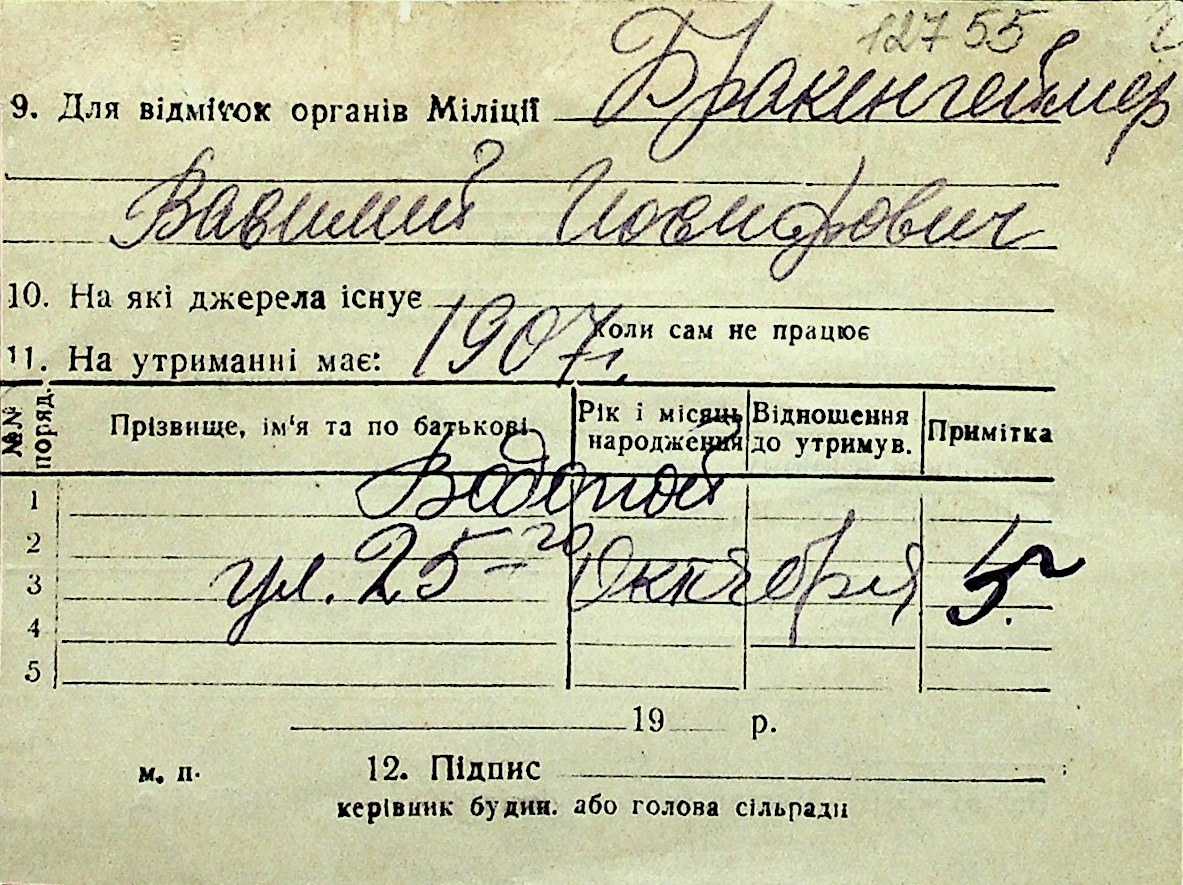 12755
9. Для відміток органів Міліції Бракенгеймер
Василий Иосифович
10. На які джерела існує
коли сам не працює
11. На утриманні має: 1907 г.
№№ поряд. Прізвище, ім'я та по батькові Рік і місяць народження Відношення до утримув. Примітка
1 Водопой
2
3 ул. 25-го Октября 5
4
5
19 р.
м. п. 12. Підпис
керівник будин. або голова сільради